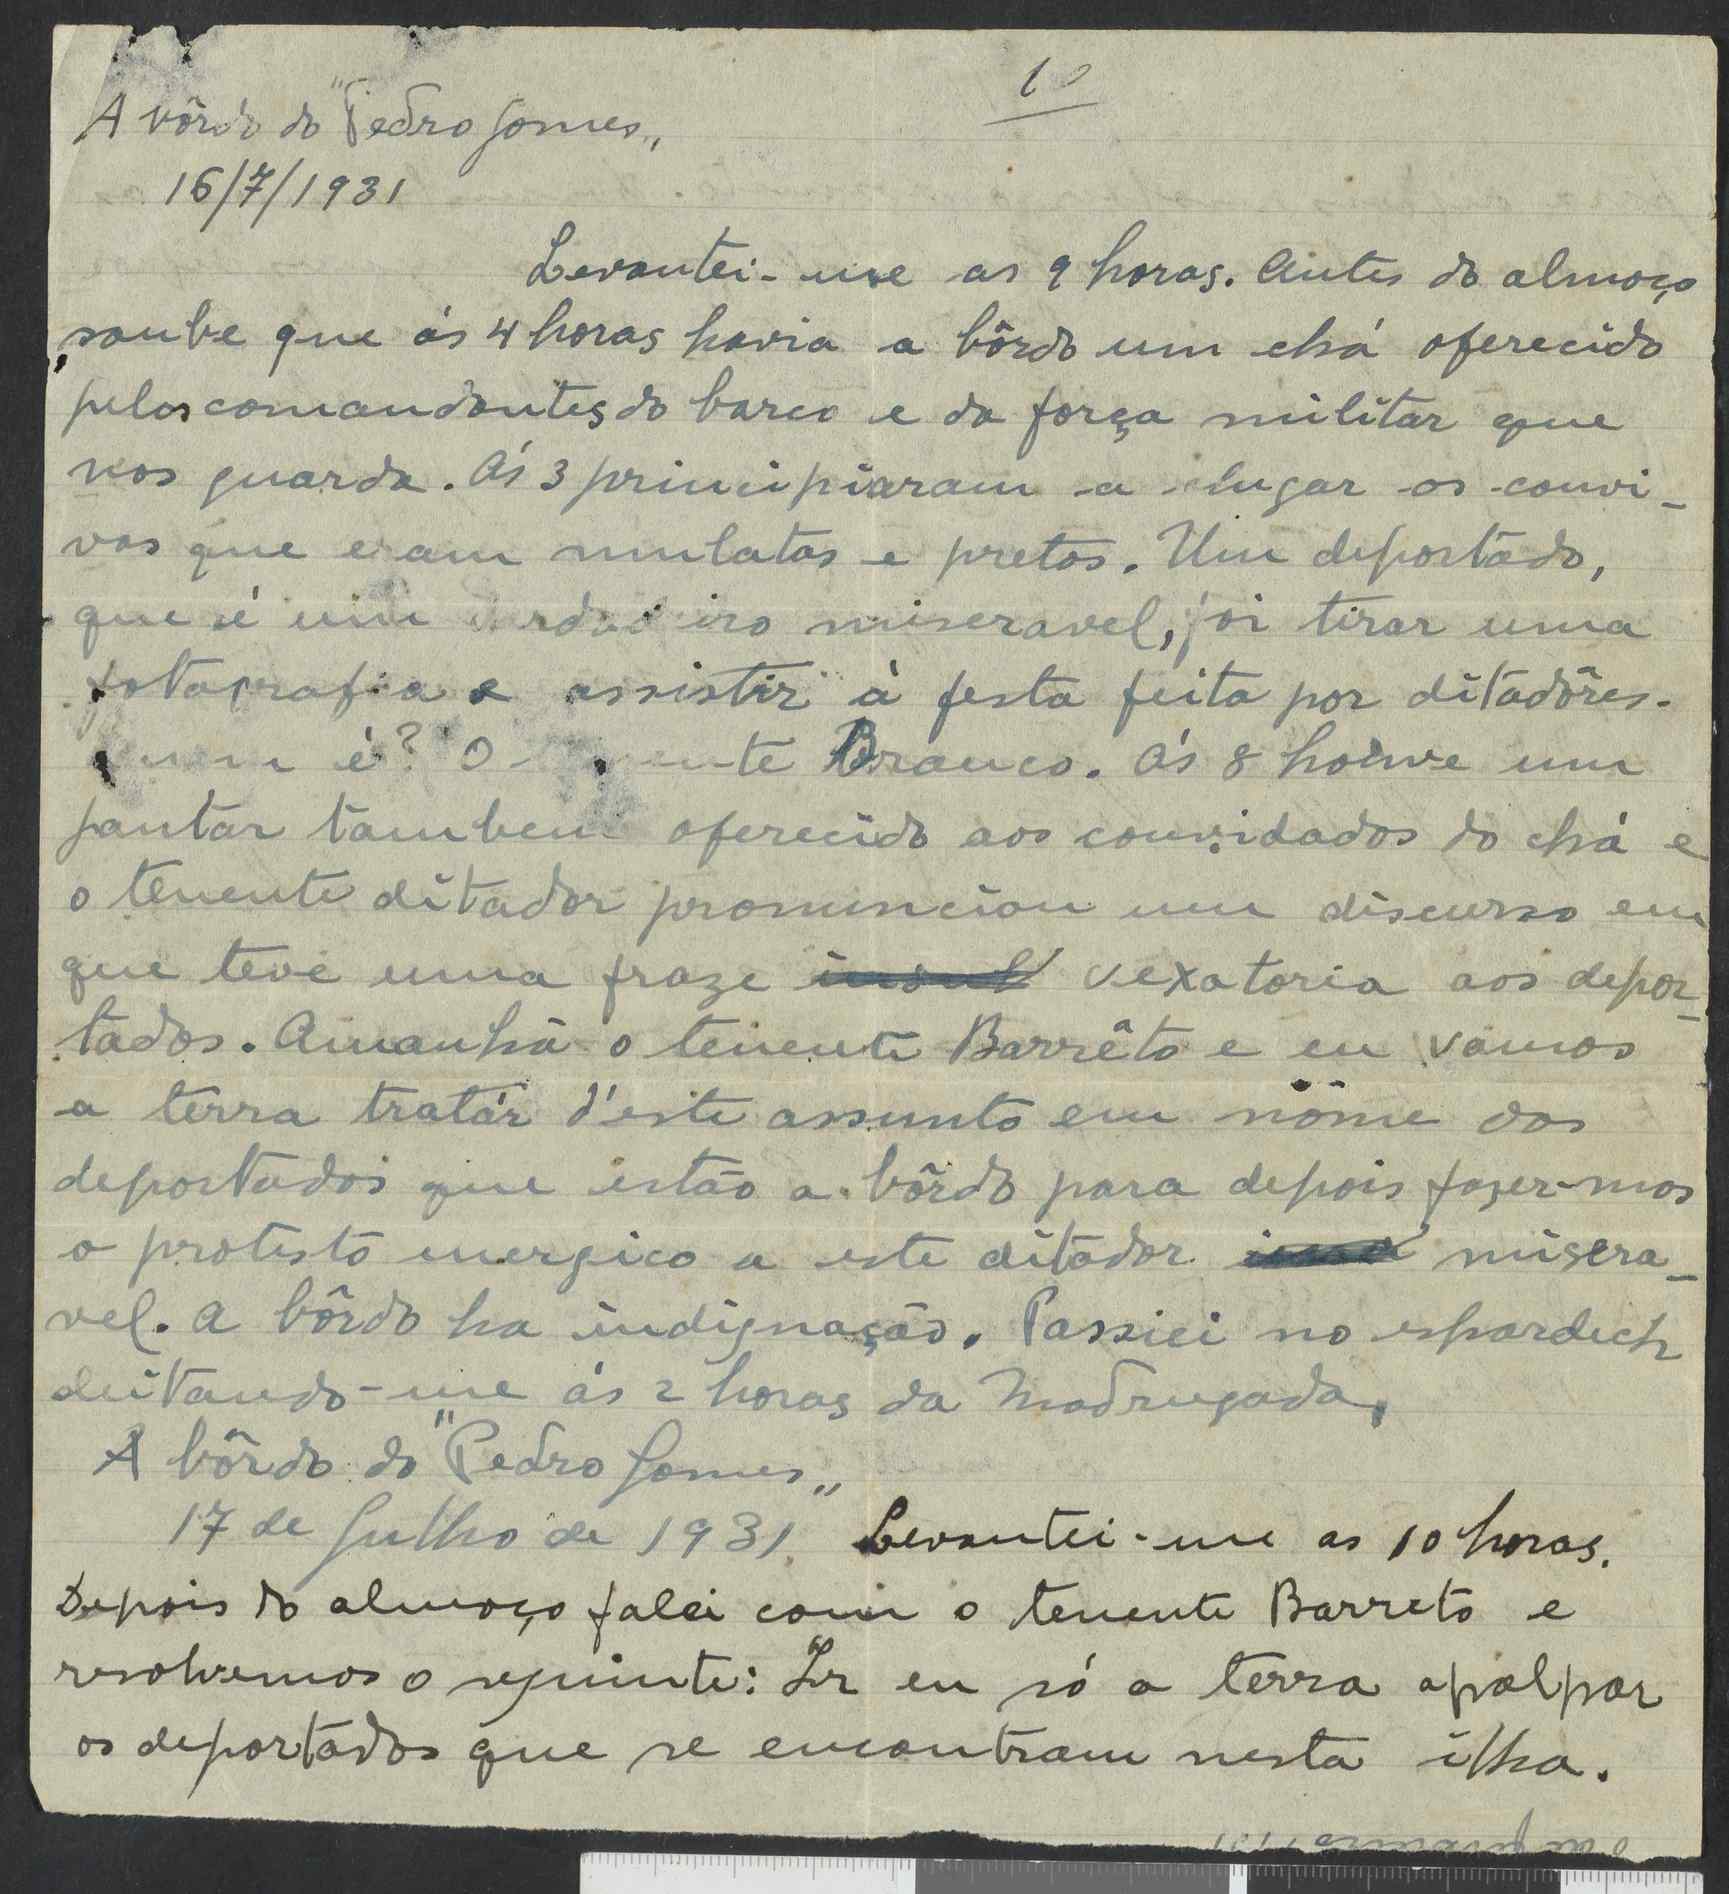 1º
A bôrdo do "Pedro Gomes„
16/7/1931
Levantei-me as 9 horas. Antes do almoço
soube que ás 4 horas havia a bôrdo um chá oferecido
pelos comandantes do barco e da força militar que
nos guarda. Ás 3 principiaram a chegar os convi-
vas que eram mulatas e pretos. Um deportado,
que é um verdadeiro miseravel, foi tirar uma
fotografia e assistir à festa feita por ditadôres.
Quem é? O tenente Branco. Ás 8 houve um
jantar tambem oferecido aos convidados do chá e
o tenente ditador pronunciou um discurso em
que teve uma fraze vexatoria aos depor-
tados. Amanhã o tenente Barrêto e eu vamos
a terra tratár d'este assunto em nôme dos
deportados que estão a bôrdo para depois fazer-mos
o protesto energico a este ditador misera-
vel. A bôrdo ha indignação. Passiei no espardech
deitando-me ás 2 horas da Madrugada.
A bôrdo do "Pedro Gomes„
17 de Julho de 1931. Levantei-me as 10 horas.
Depois do almoço falei com o tenente Barreto e
resolvemos o seguinte: Ir eu só a terra apalpar
os deportados que se encontram nesta ilha.